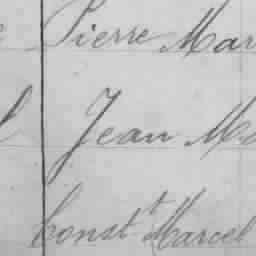 Pierre Mar
Jean Ma
Const^t Marcel